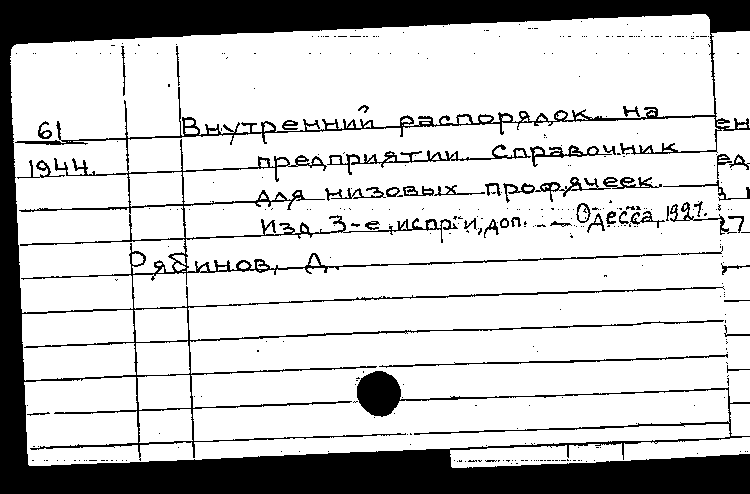 61
1944.
Внутренний распорядок на
предприятии. Справочник
для низовых профячеек.
Изд. 3-е, испр. и доп. — Одесса, 1927.
Рябинов, Д.